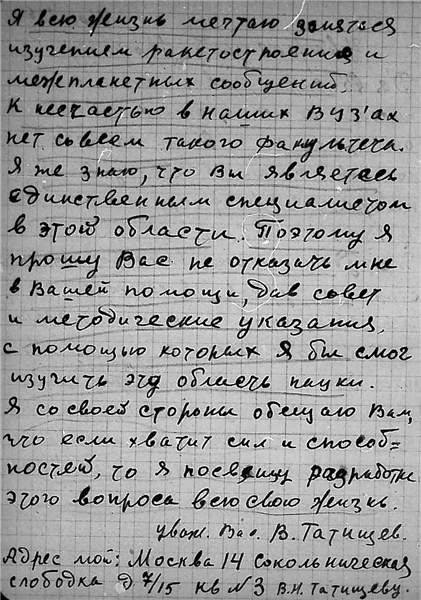 Я всю жизнь мечтаю заняться
изучением ракетостроения и
межпланетных сообщений.
К несчастью в наших ВУЗ'ах
нет совсем такого факультета.
Я же знаю, что Вы являетесь
единственным специалистом
в этой области. Поэтому я
прошу Вас не отказать мне
в Вашей помощи, дав совет
и методические указания,
с помощью которых я бы смог
изучить эту область науки.
Я со своей стороны обещаю Вам,
что если хватит сил и способ=
ностей, то я посвящу разработке
этого вопроса всю свою жизнь.
уваж. Вас. В. Татищев.
Адрес мой: Москва 14 Сокольническая
слободка д 7/15 кв №3 В.Н. Татищеву.